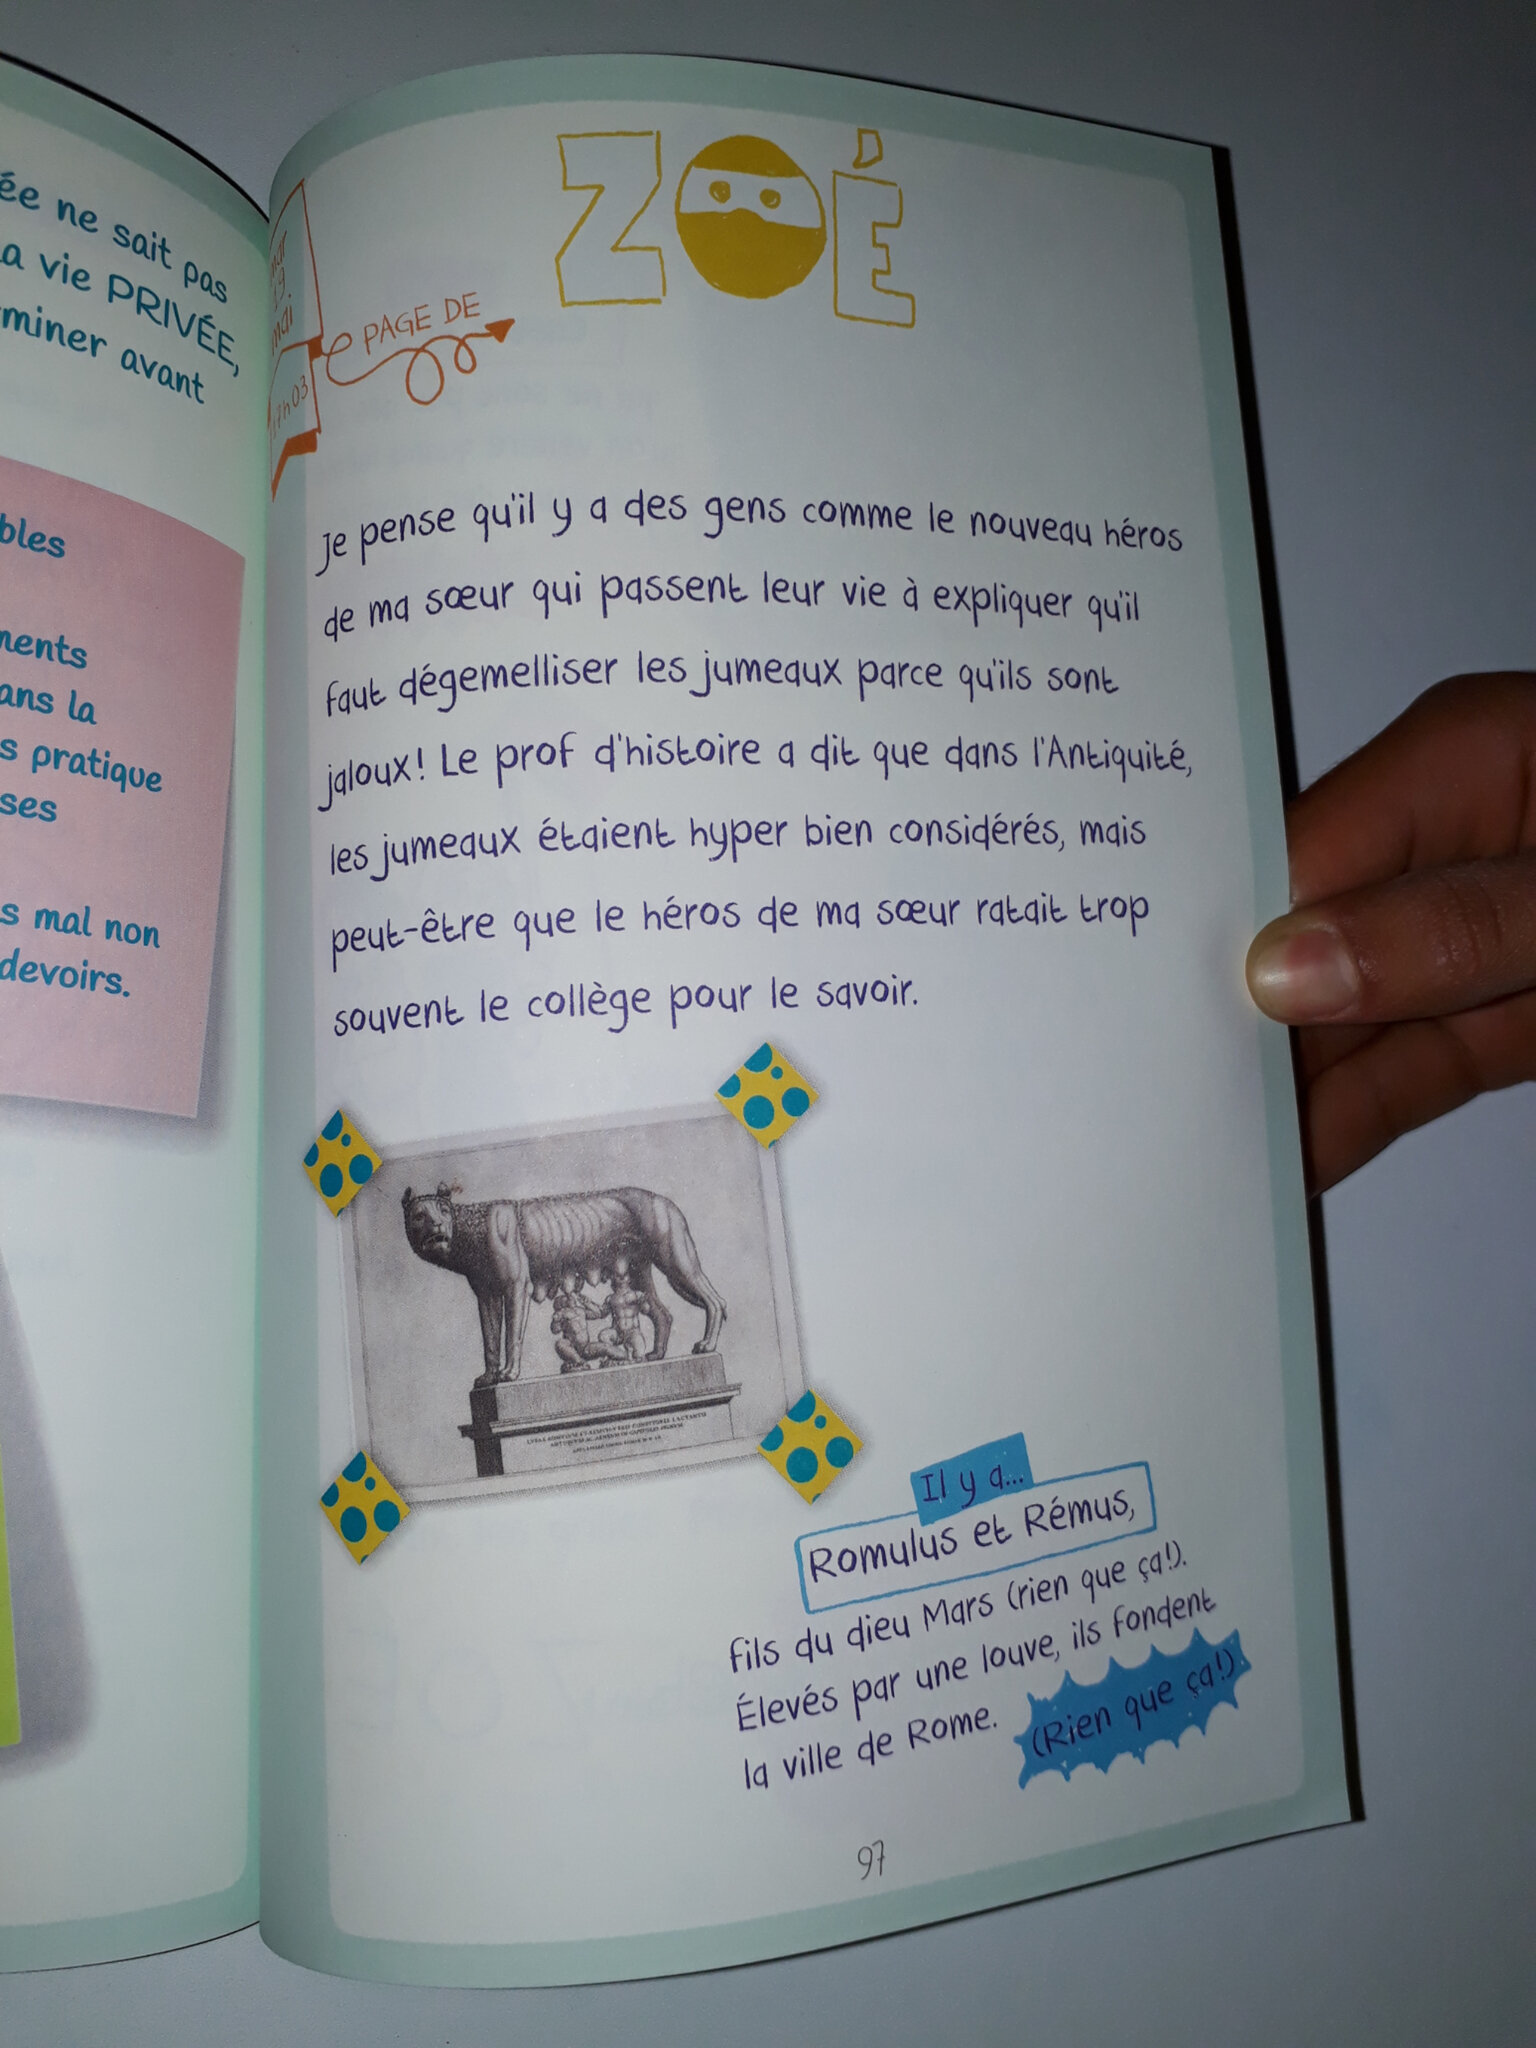 ée ne sait pas
a vie PRIVÉE,
miner avant
bles
ments
ans la
s pratique
ses
s mal non
devoirs.
ZOÉ
mar
19
mai
17h03
PAGE DE
Je pense qu'il y a des gens comme le nouveau héros
de ma sœur qui passent leur vie à expliquer qu'il
faut dégemelliser les jumeaux parce qu'ils sont
jaloux! Le prof d'histoire a dit que dans l'Antiquité,
les jumeaux étaient hyper bien considérés, mais
peut-être que le héros de ma sœur ratait trop
souvent le collège pour le savoir.
Il y a...
Romulus et Rémus,
fils du dieu Mars (rien que ça!).
Élevés par une louve, ils fondent
la ville de Rome. (Rien que ça!)
97